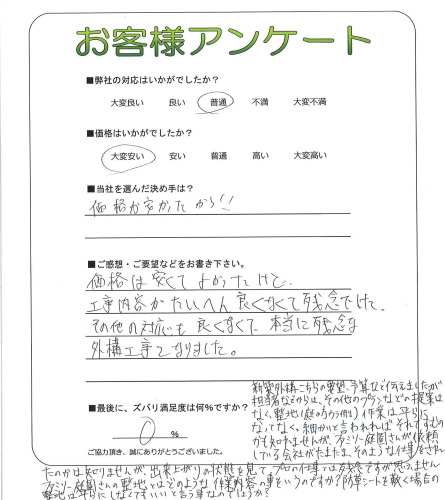 お客様アンケート
■弊社の対応はいかがでしたか？
大変良い　良い　普通　不満　大変不満
■価格はいかがでしたか？
大変安い　安い　普通　高い　大変高い
■当社を選んだ決め手は？
価格が安かったから!!
■ご感想・ご要望などをお書き下さい。
価格は安くてよかったけど、
工事内容がたいへん良くなくて残念でした。
その他の対応も良くなくて、本当に残念な
外構工事となりました。
■最後に、ズバリ満足度は何%ですか？
0 %
ご協力頂き、誠にありがとうございました。
新築外構こちらの要望、予算など伝えましたが
担当者などからは、その他のプランなどの提案は
なく、整地(庭のウラ側)作業は平らに
なってなく、細かいと言われればそれですむの
かも知れませんが、ファミリー庭園さんが依頼
している会社がたまたま、そのような仕事をされ
たのかは知りませんが、出来上がりの状態を見て、プロの仕事では残念ですが思えません
ファミリー庭園さんの整地とはどのような作業内容の事をいうのですか？防草シートを敷く場合の
整地は平らにしなくてもいいと言う事なのでしょうか？